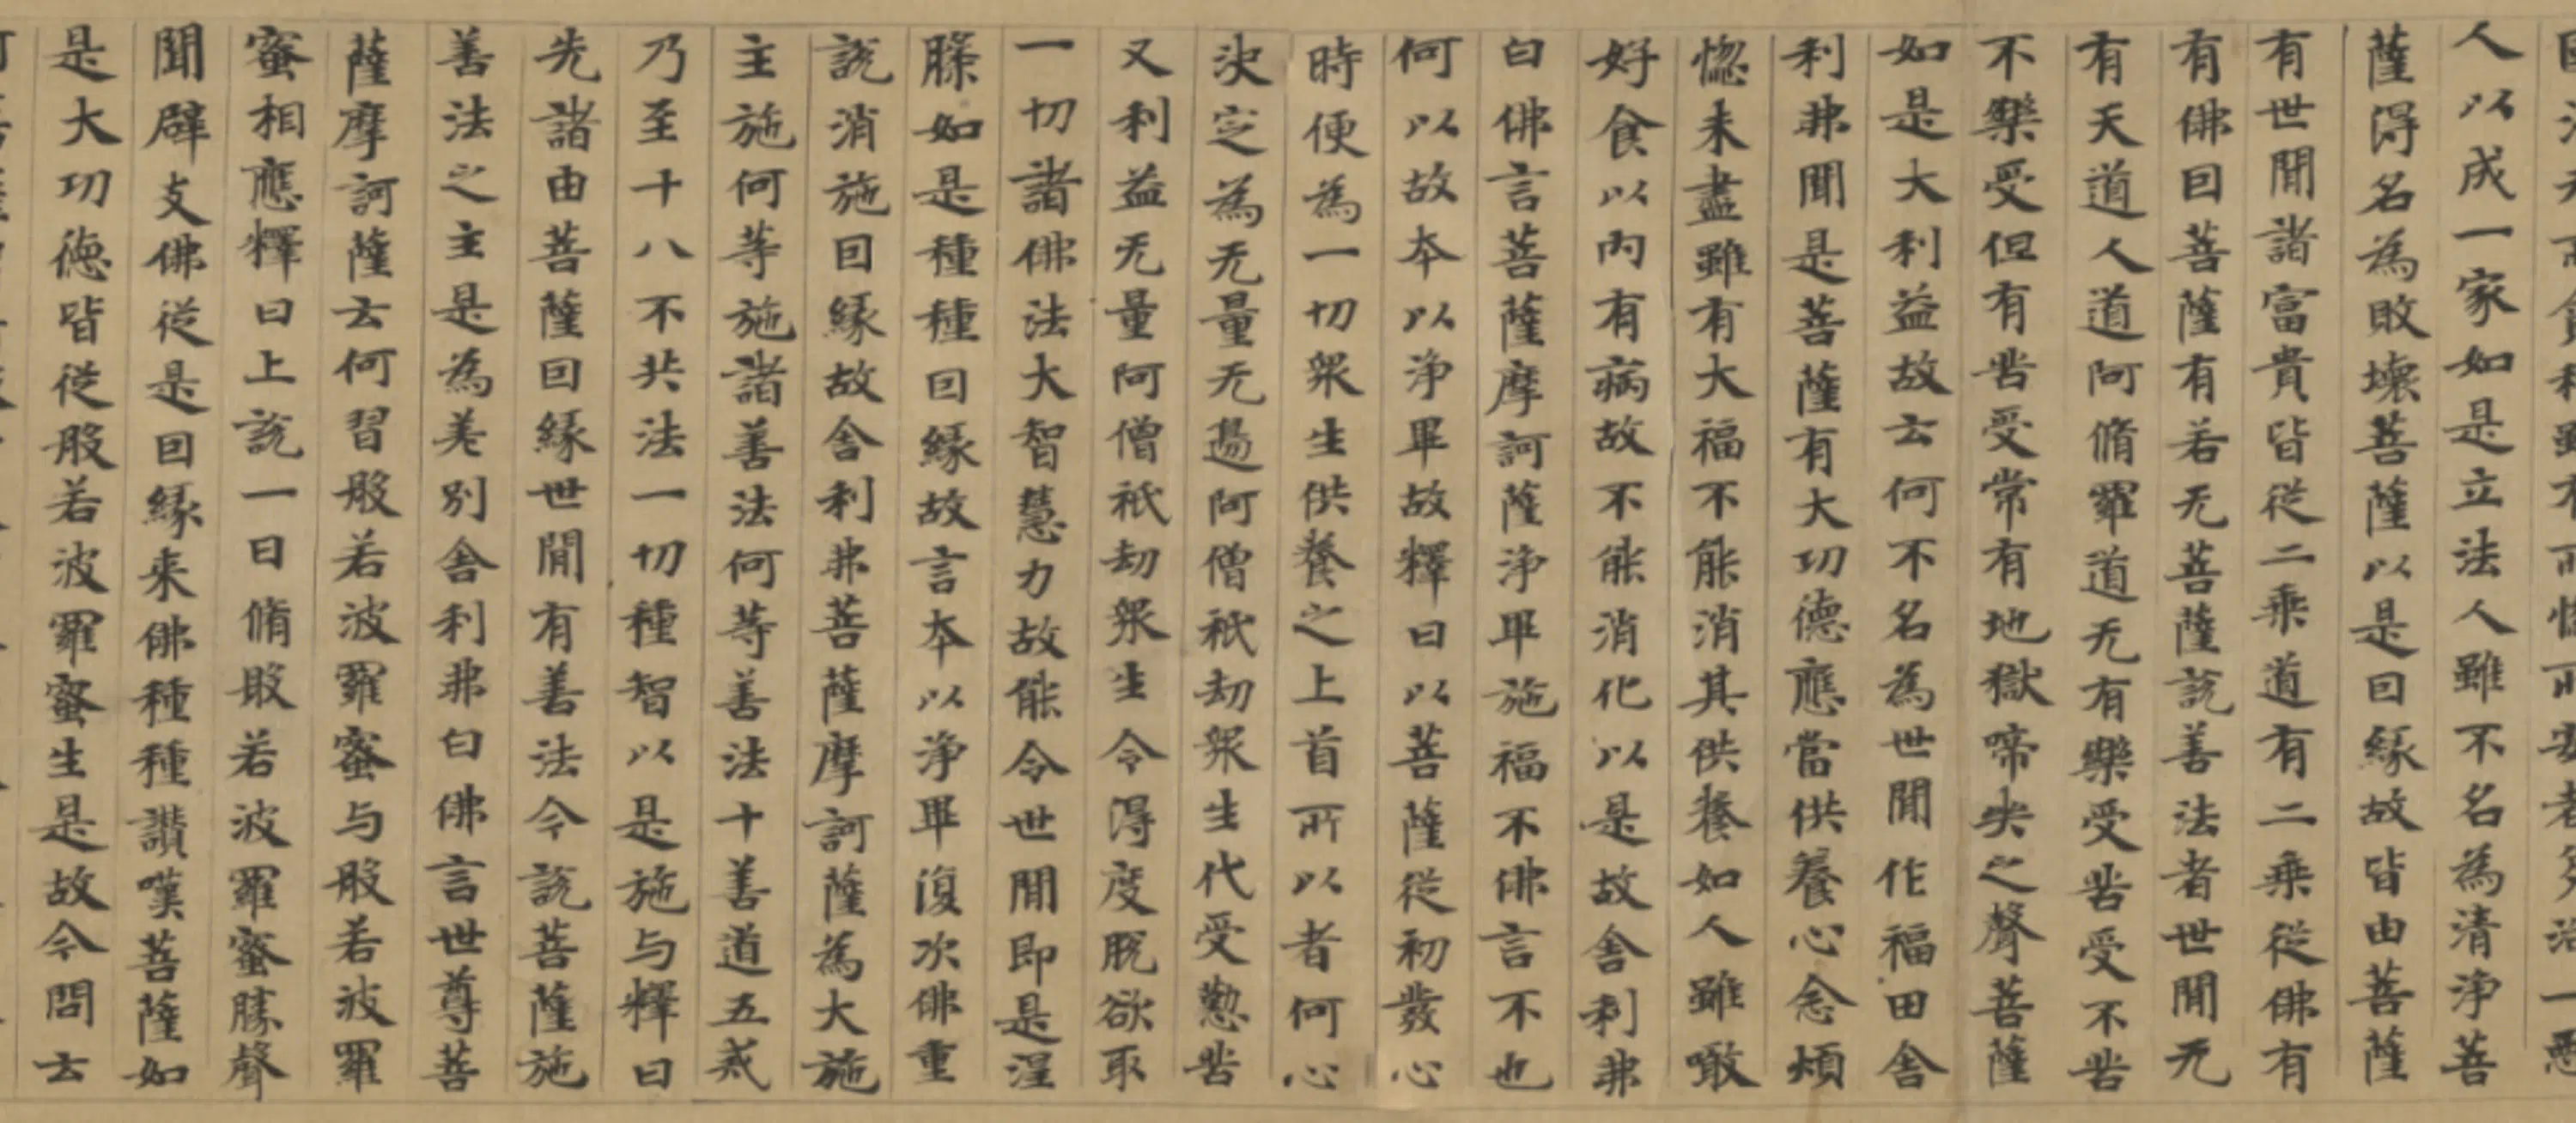 人以成一家如是立法人雖不名為清淨菩
薩得名為敗壞菩薩以是因緣故皆由菩薩
有世閒諸富貴皆從二乘道有二乘從佛有
有佛因菩薩有若无菩薩說善法者世閒无
有天道人道阿脩羅道无有樂受苦受不苦
不樂受但有苦受常有地獄啼哭之聲菩薩
如是大利益故云何不名為世閒作福田舍
利弗聞是菩薩有大功德應當供養心念煩
惚未盡雖有大福不能消其供養如人雖噉
好食以內有病故不能消化以是故舍利弗
白佛言菩薩摩訶薩淨畢施福不佛言不也
何以故本以淨畢故釋曰以菩薩從初發心
時便為一切眾生供養之上首所以者何心
決定為无量无邊阿僧祇劫眾生代受懃苦
又利益无量阿僧祇劫眾生令得度脫欲取
一切諸佛法大智慧力故能令世閒即是涅
膝如是種種因緣故言本以淨畢復次佛重
說消施因緣故舍利弗菩薩摩訶薩為大施
主施何等施諸善法何等善法十善道五戒
乃至十八不共法一切種智以是施与釋曰
先諸由菩薩因緣世閒有善法今說菩薩施
善法之主是為差別舍利弗白佛言世尊菩
薩摩訶薩云何習般若波羅蜜与般若波羅
蜜相應釋曰上說一日脩般若波羅蜜勝聲
聞辟支佛從是因緣来佛種種讚嘆菩薩如
是大功德皆從般若波羅蜜生是故今問云